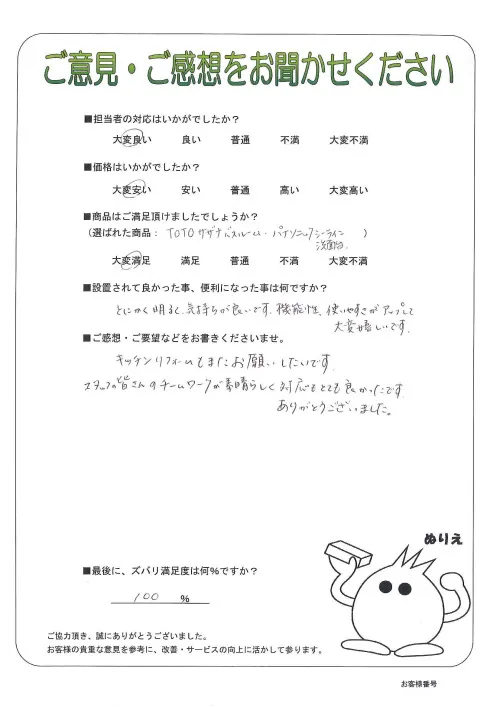 ご意見・ご感想をお聞かせください
■担当者の対応はいかがでしたか？
大変良い 良い 普通 不満 大変不満
■価格はいかがでしたか？
大変安い 安い 普通 高い 大変高い
■商品はご満足頂けましたでしょうか？
（選ばれた商品： TOTO サザナバスルーム・パナソニックシーライン
洗面台 ）
大変満足 満足 普通 不満 大変不満
■設置されて良かった事、便利になった事は何ですか？
とにかく明るく気持ちが良いです。機能性、使いやすさがアップして
大変嬉しいです。
■ご感想・ご要望などをお書きくださいませ。
キッチンリフォームもまたお願いしたいです。
スタッフの皆さんのチームワークが素晴らしく対応もとても良かったです。
ありがとうございました。
ぬりえ
■最後に、ズバリ満足度は何％ですか？
100 ％
ご協力頂き、誠にありがとうございました。
お客様の貴重な意見を参考に、改善・サービスの向上に活かして参ります。
お客様番号